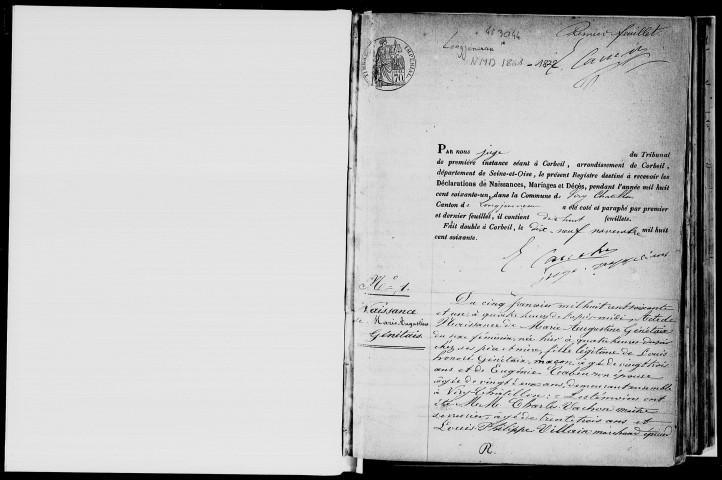 Premier feuillet
4E 3044
Longjumeau
NMD 1861 - 1872
E
TIMBRE IMPERIAL
70
PAR nous juge du Tribunal
de première instance séant à Corbeil, arrondissement de Corbeil,
département de Seine-et-Oise, le présent Registre destiné à recevoir les
Déclarations de Naissances, Mariages et Décès, pendant l'année mil huit
cent soixante-un, dans la Commune de Viry Chatillon
Canton de Longjumeau a été coté et paraphé par premier
et dernier feuillet, il contient dix huit feuillets.
Fait double à Corbeil, le dix-neuf novembre mil huit
cent soixante.
E
juge
No 1.
Naissance
de Marie Augustine
Génitais
Du cinq Janvier mil huit cent soixante
et un à quatre heures de l'après-midi. Acte de
Naissance de Marie Augustine Génitais
du sexe féminin, née hier à quatre heures du soir
chez ses père et mère, fille légitime de Louis
honoré Génitais, maçon, âgé de vingt trois
ans et de Eugénie son épouse
âgée de vingt deux ans, demeurant ensemble
à Viry Chatillon; Les témoins ont
été MM. Charles Vachon maître
serrurier, âgé de trente trois ans et
Louis Philippe Villain marchand épicier
R.